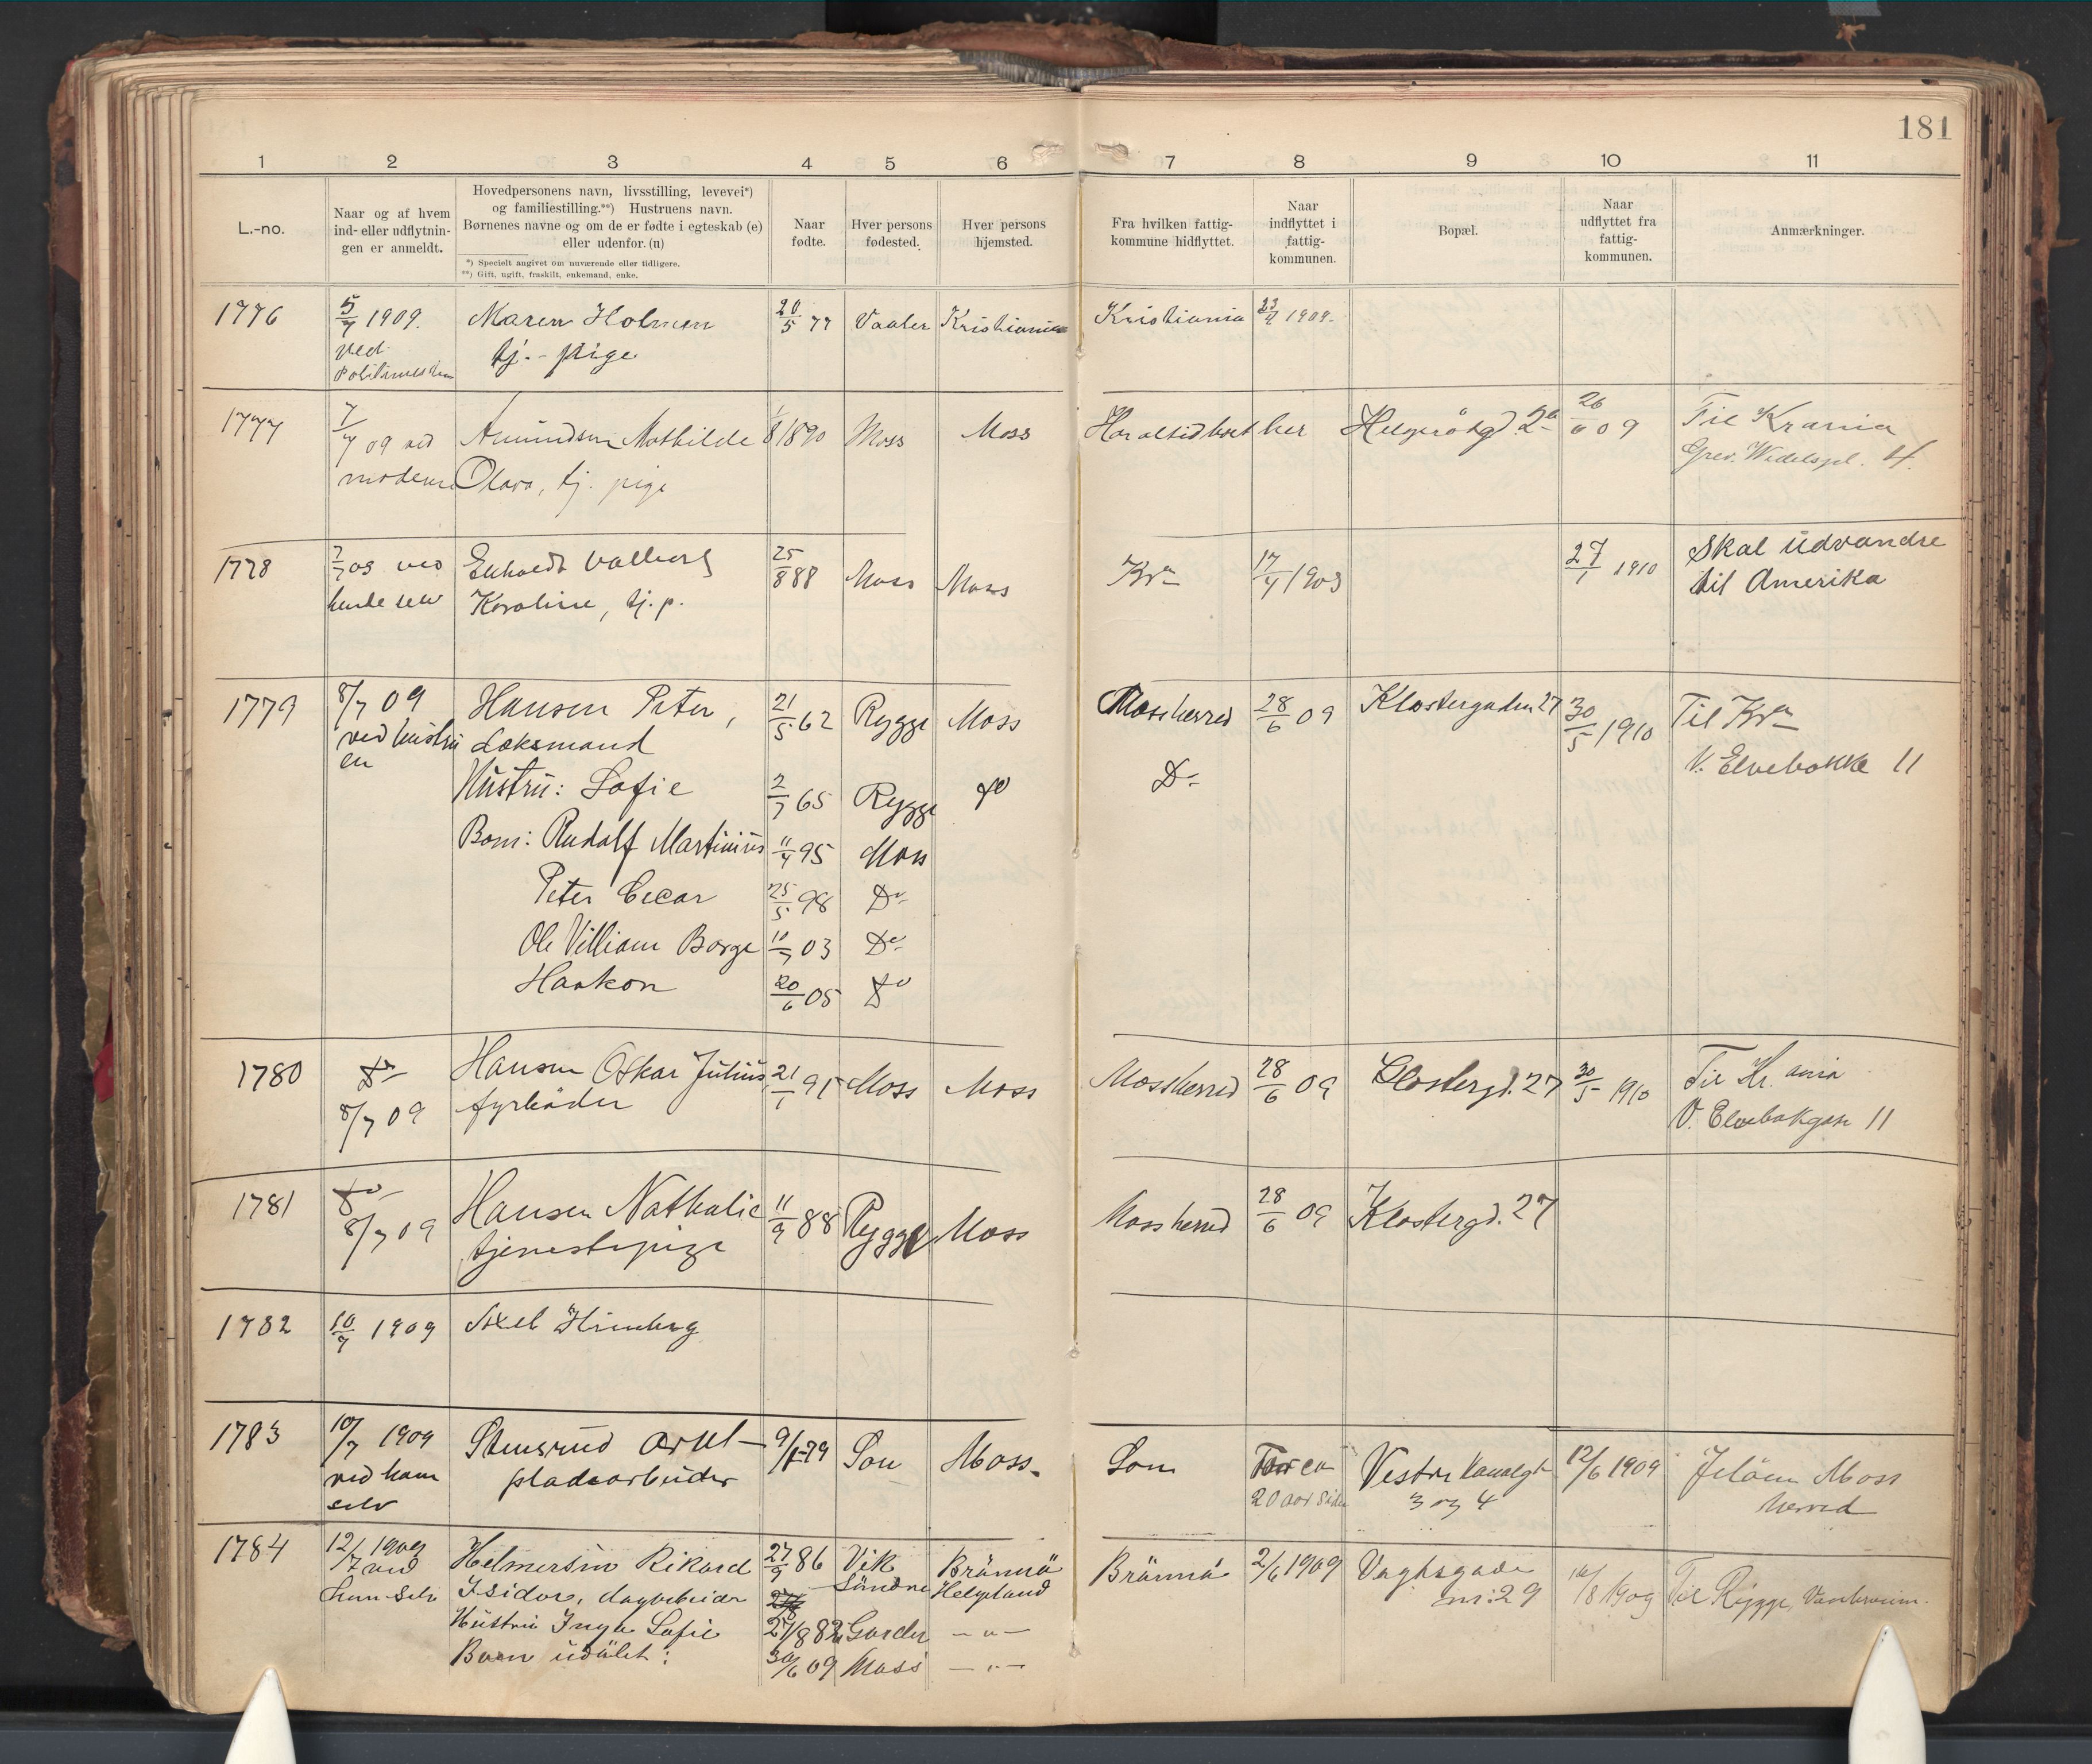 181
1 2 3 4 5 6 7 8 9 10 11
L.-no.
Naar og af hvem
ind- eller udflytnin-
gen er anmeldt.
Hovedpersonens navn, livsstilling, levevei*)
og familiestilling.**) Hustruens navn.
Børnenes navne og om de er fødte i egteskab (e)
eller udenfor. (u)
*) Specielt angivet om nuværende eller tidligere.
**) Gift, ugift, fraskilt, enkemand, enke.
Naar
fødte.
Hver persons
fødested.
Hver persons
hjemsted.
Fra hvilken fattig-
kommune hidflyttet.
Naar
indflyttet i
fattig-
kommunen.
Bopæl.
Naar
udflyttet fra
fattig-
kommunen.
Anmærkninger.
1776 5/7 1909. Maren Holmen 20/5 77 Vaaler Kristiania Kristiania 23/4 1909.
ved tj. - pige
1777 7/7 09 ved Amundsen Mathilde 1/8 1890 Moss Moss Har altid boet her 26/6 09 Til Krania
moderen Olava, tj. pige Grev. Wedelspl. 4.
1778 7/7 09 ved Valborg 25/8 88 Moss Moss Kra 17/4 1903 27/1 1910 Skal udvandre
hende selv Karoline, tj. p. til Amerika
1779 8/7 09 Hansen Peter, 21/5 62 Rygge Moss Mossherred 28/6 09 Klostergaden 27 30/5 1910 Til Kra
ved hustru Loksmand V. Elvebakke 11
en
Hustru: Sofie 2/7 65 Rygge Do Do
Børn: Rudolf Martinius 11/4 95 Moss
Peter Oscar 25/5 98 Do
Ole Villiam Borge 10/7 03 Do
Haakon 20/6 05 Do
1780 Do Hansen Oskar Julius 21/1 91 Moss Moss Mossherred 28/6 09 Klostergd. 27 30/5 1910 Til Kr.ania
8/7 09 fyrbøder V. Elvebakgan 11
1781 Do Hansen Nathalie 11/9 88 Rygge Moss Mossherred 28/6 09 Klostergd. 27
8/7 09 tjenestepige
1782 10/7 1909 Axel Himberg
1783 10/7 1909 Stensrud Aksel 9/1-79 Son Moss. Son For ca 12/6 1909 Jeløen Moss
ved ham pladsarbeider 20 aar siden 3 og 4 herred
selv
1784 12/7 1909 Helmersen Rikard 27/9 86 Vik Brännö Brännö 2/6 1909 Vogtsgade 16/8 1909 Til Rygge,
ved Isidor, dagarbeider Søndre Helgeland nr: 29
ham selv
Hustru Inga Sofie 27/8 82 Garder - " -
Barn udøbt: 30/6 09 Moss - " -